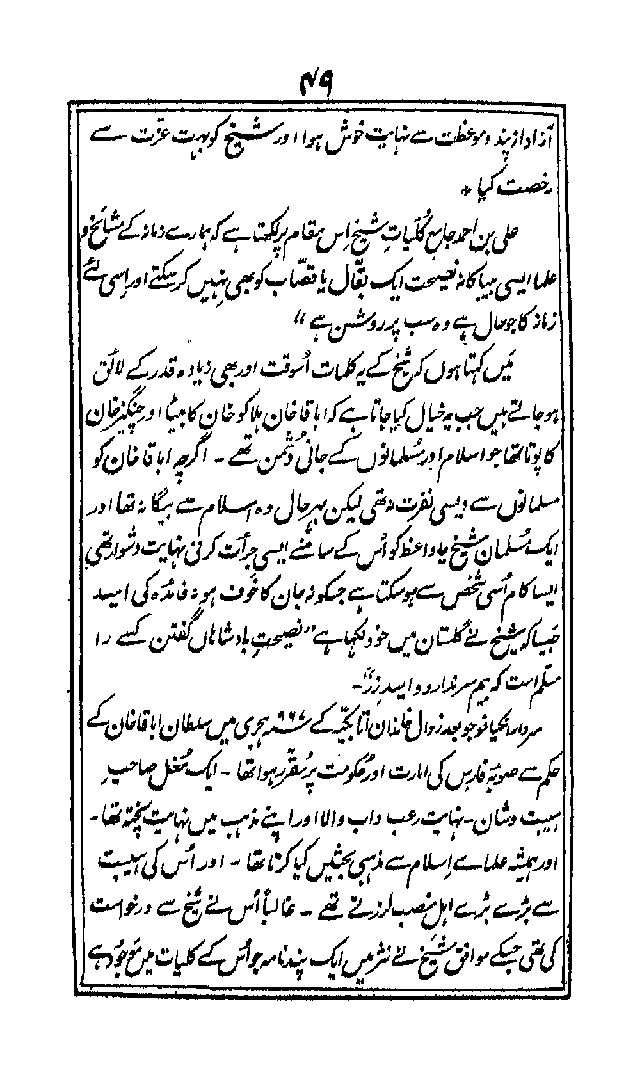 ۴۹
آزادانہ پند و موعظت سے نہایت خوش ہوا اور شیخ کو بہت عزت سے
رخصت کیا *
علی بن احمد جامع کُلّیاتِ شیخ اِس مقام پر لکھتا ہے کہ ہمارے زمانہ کے مشائخ و
علما ایسی بیباکانہ نصیحت ایک بقّال یا قصّاب کو بھی نہیں کر سکتے اور اِسی لئے
زمانہ کا جو حال ہے وہ سب پر روشن ہے "
مَیں کہتا ہوں کہ شیخ کے یہ کلمات اُسوقت اور بھی زیادہ قدر کے لائق
ہو جاتے ہیں جب یہ خیال کیا جاتا ہے کہ اباقا خان ہلاکو خان کا بیٹا اور چنگیز خان
کا پوتا تھا جو اسلام اور مُسلمانوں کے جانی دُشمن تھے ۔ اگرچہ اباقا خان کو
مسلمانوں سے ویسی نفرت نہ تھی لیکن بہر حال وہ اسلام سے بیگانہ تھا اور
ایک مُسلمان شیخ یا واعظ کو اُس کے سامنے ایسی جرأت کرنی نہایت دشوار تھی
ایسا کام اُسی شخص سے ہو سکتا ہے جسکو نہ جان کا خوف ہو نہ فائدہ کی امید
جیسا کہ شیخ نے گلستان میں خود لکھا ہے "نصیحتِ بادشاہاں گفتن کسے را
مسلم است کہ بیم سر ندارد و امید زر"۔
سردار انکیانو جو بعد زوال خاندان اتابکیّہ کے ۶۶۷ ہجری میں سلطان اباقا خان کے
حکم سے صوبۂ فارس کی امارت اور حکومت پر مُقرّر ہوا تھا ۔ ایک مُغل صاحبِ
ہیبت و شان ۔ نہایت رعب داب والا اور اپنے مذہب میں نہایت پختہ تھا ۔
اور ہمیشہ علمائے اِسلام سے مذہبی بحثیں کیا کرتا تھا ۔ اور اُس کی ہیبت
سے بڑے بڑے اہل منصب لرزتے تھے ۔ غالباً اُس نے شیخ سے درخواست
کی تھی جسکے موافق شیخ نے نثر میں ایک پند نامہ جو اُس کے کلیات میں موجود ہے